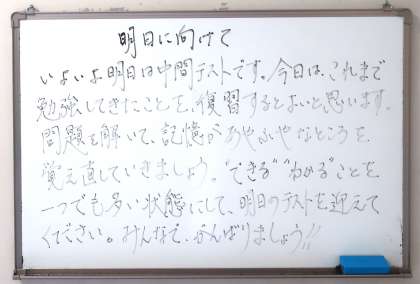 明日に向けて
いよいよ明日は中間テストです。今日は、これまで
勉強してきたことを、復習するとよいと思います。
問題を解いて、記憶があやふやなところを
覚え直していきましょう。“できる”“わかる”ことを
一つでも多い状態にして、明日のテストを迎えて
ください。みんなで、がんばりましょう!!